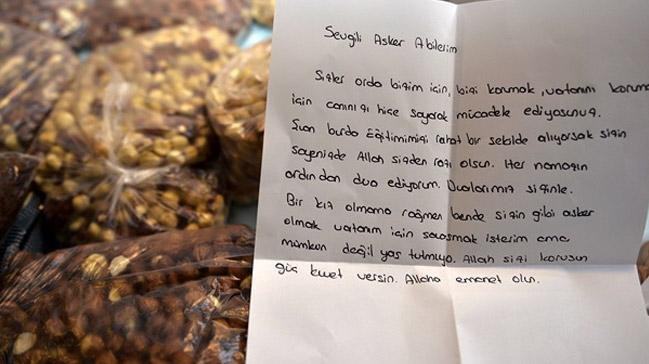 Sevgili Asker Abilerim
Sizler orda bizim için, bizi korumak, vatanını koruma
için canınızı hiçe sayarak mücadele ediyosunuz.
Şuan burda Eğitimimizi rahat bir şekilde alıyorsak sizin
sayenizde Allah sizden razı olsun. Her namazın
ardından dua ediyorum. Dualarımız sizinle.
Bir kız olmama rağmen bende sizin gibi asker
olmak vatanım için savaşmak isterim ama
mümkün değil yaş tutmuyo. Allah sizi korusun
güç kuvvet versin. Allaha emanet olun.